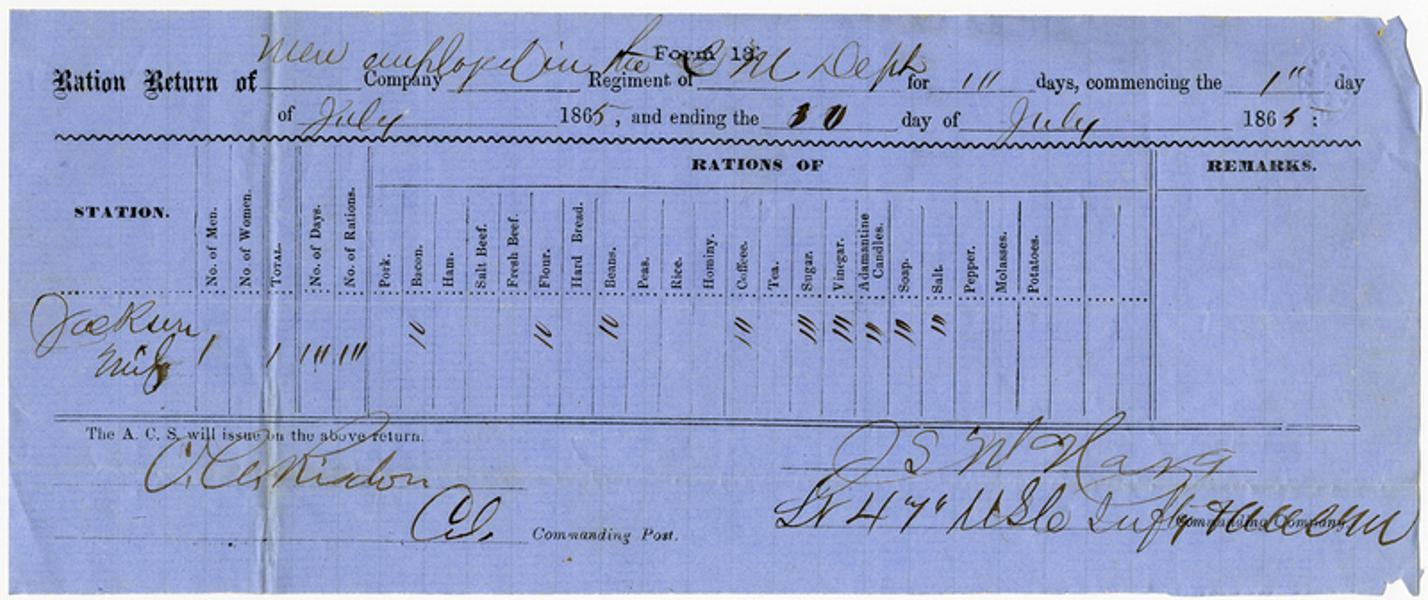 Form 13.
Ration Return of Men Company employed in the Regiment of Q M Dept for 10 days, commencing the 1" day
of July 1865, and ending the 10 day of July 1865:
RATIONS OF
REMARKS.
STATION.
No. of Men.
No of Women.
TOTAL.
No. of Days.
No. of Rations.
Pork.
Bacon.
Ham.
Salt Beef.
Fresh Beef.
Flour.
Hard Bread.
Beans.
Peas.
Rice.
Hominy.
Coffee.
Tea.
Sugar.
Vinegar.
Adamantine Candles.
Soap.
Salt.
Pepper.
Molasses.
Potatoes.
Jackson 1 1 10 10 10 10 10 10 10 10 10 10 10
Miss
The A. C. S. will issue on the above return.
Risdon
Col. Commanding Post.
Lt 47" USC Infty Commanding Company